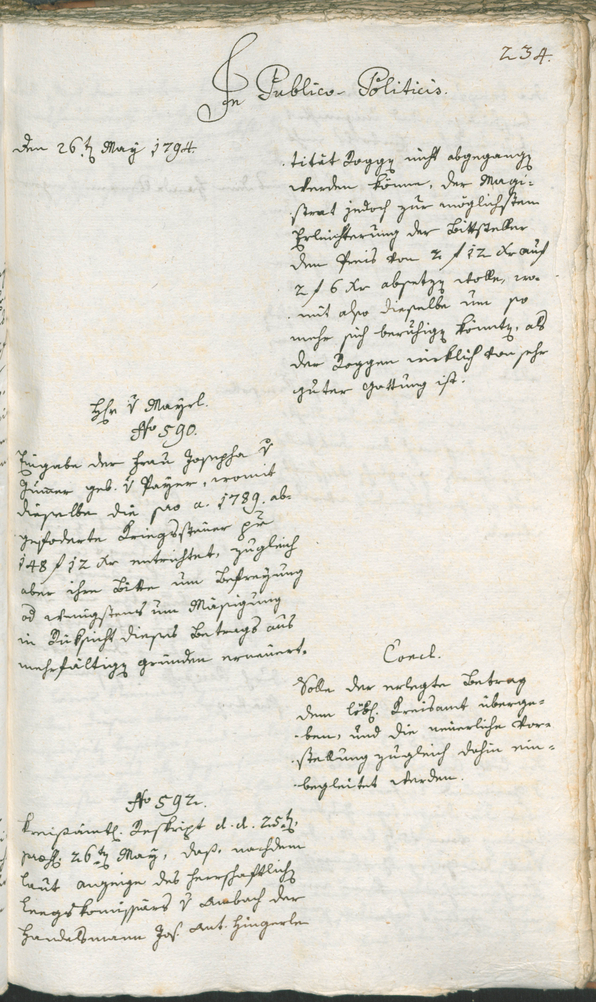 234.
In Publico-Politicis.
den 26t May 1794.
titæt Roggen nicht abgegangen
werden könne, der Magi-
strat jedoch zur möglichsten
Erleichterung der Bittsteller
den Preis von 2 f 12 Xr auf
2 f 6 Xr absetzen wolle, wo-
mit also dieselbe um so
mehr sich beruhigen könnten, als
der Roggen wirklich von sehr
guter Gattung ist.
Hr v Mayrl.
No 590.
Eingabe der Frau Josepha v
geb. v Payer, womit
dieselbe die pro a. 1789. ab-
gefoderte Kriegssteuer pr
148 f 12 Xr entrichtet, zugleich
aber ihre Bitte um Befreyung
od wenigstens um Mäsigung
in Rüksicht dieses Betrags aus
mehrfältigen gründen erneuert.
Concl.
Solle der erlegte Betrag
dem löbl. Kreisamt überge-
ben, und die neuerliche Vor-
stellung zugleich dahin ein-
begleitet werden.
No 592.
Kreisämtl. Reskript d. d. 25t,
26t May, daß, nachdem
laut anzeige des herrschaftlichen
v der
Handelsmann Jos. Ant. Hingerle